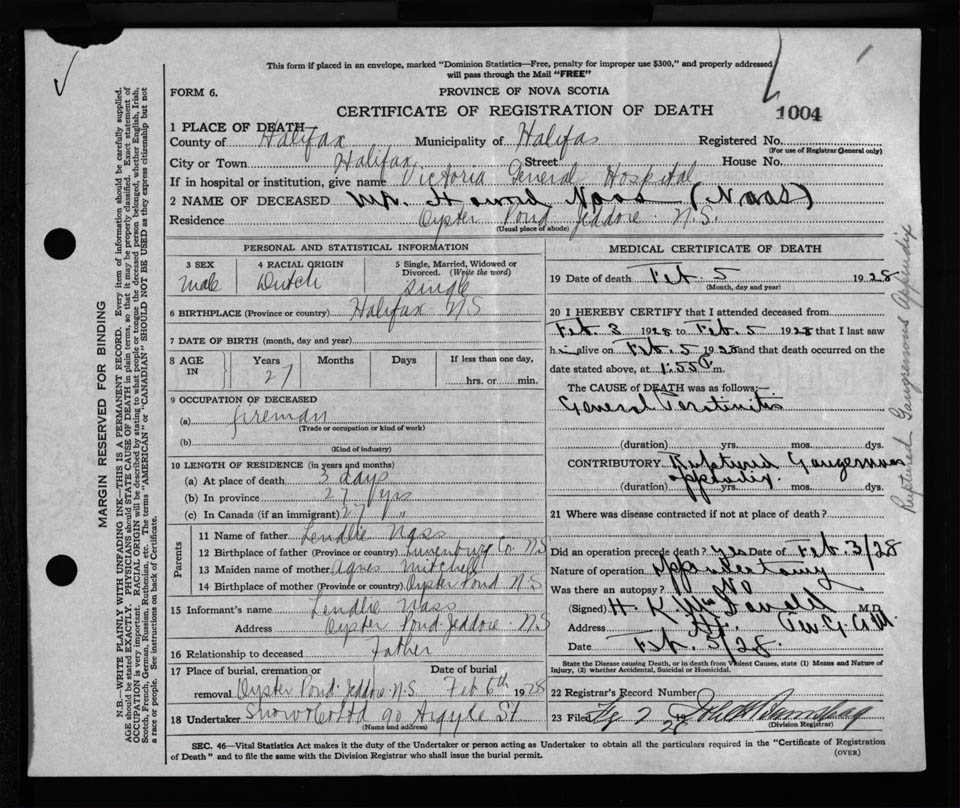 This form if placed in an envelope, marked "Dominion Statistics—Free, penalty for improper use $300," and properly addressed
will pass through the Mail "FREE"
FORM 6.
PROVINCE OF NOVA SCOTIA
CERTIFICATE OF REGISTRATION OF DEATH
1004
1 PLACE OF DEATH—
County of Halifax Municipality of Halifax Registered No.
(For use of Registrar General only)
City or Town Halifax Street House No.
If in hospital or institution, give name Victoria General Hospital
2 NAME OF DECEASED Mr. Howard Naas (Naas)
Residence Oyster Pond Jeddore N.S.
(Usual place of abode)
PERSONAL AND STATISTICAL INFORMATION
3 SEX
male
4 RACIAL ORIGIN
Dutch
5 Single, Married, Widowed or
Divorced. (Write the word)
single
6 BIRTHPLACE (Province or country) Halifax NS
7 DATE OF BIRTH (month, day and year)
8 AGE IN
Years Months Days If less than one day,
27
hrs. or min.
9 OCCUPATION OF DECEASED
(a) fireman
(Trade or occupation or kind of work)
(b)
(Kind of industry)
10 LENGTH OF RESIDENCE (in years and months)
(a) At place of death 3 days
(b) In province 27 yrs
(c) In Canada (if an immigrant) 27 "
Parents
11 Name of father Lendlie Nass
12 Birthplace of father (Province or country) Lunenburg Co NS
13 Maiden name of mother Agnes Mitchell
14 Birthplace of mother (Province or country) Oyster Pond N.S
15 Informant's name Lendlie Nass
Address Oyster Pond Jeddore NS
16 Relationship to deceased Father
17 Place of burial, cremation or Date of burial
removal Oyster Pond Jeddore N.S. Feb 6th 1928
18 Undertaker Snow & Co Ltd 90 Argyle St
(Name and address)
MEDICAL CERTIFICATE OF DEATH
19 Date of death Feb. 5 1928
(Month, day and year)
20 I HEREBY CERTIFY that I attended deceased from
Feb 3 1928 to Feb. 5 1928 that I last saw
h i alive on Feb. 5 1928 and that death occurred on the
date stated above, at 1.50 m.
The CAUSE of DEATH was as follows:—
General Peratinitis
(duration) yrs. mos. dys.
CONTRIBUTORY Ruptured Gangernous
appendix.
(duration) yrs. mos. dys.
21 Where was disease contracted if not at place of death?
Did an operation precede death? yes Date of Feb. 3/28
Nature of operation appendectomy
Was there an autopsy? No
(Signed) H. K. McDonald M.D.
Address
Date Feb. 5/28.
State the Disease causing Death, or in death from Violent Causes, state (1) Means and Nature of
Injury, (2) whether Accidental, Suicidal or Homicidal.
22 Registrar's Record Number
23 Filed 7 1928
(Division Registrar)
SEC. 46—Vital Statistics Act makes it the duty of the Undertaker or person acting as Undertaker to obtain all the particulars required in the "Certificate of Registration
of Death" and to file the same with the Division Registrar who shall issue the burial permit.
(OVER)
MARGIN RESERVED FOR BINDING
N.B.—WRITE PLAINLY WITH UNFADING INK—THIS IS A PERMANENT RECORD. Every item of information should be carefully supplied.
AGE should be stated EXACTLY. PHYSICIANS should STATE CAUSE OF DEATH in plain terms, so that it may be properly classified. Exact statement of
OCCUPATION is very important. RACIAL ORIGIN will be described by stating to what people or tongue the deceased person belonged, whether English, Irish,
Scotch, French, German, Russian, Ruthenian, etc. The terms "AMERICAN" or "CANADIAN" SHOULD NOT BE USED as they express citizenship but not
a race or people. See instructions on back of Certificate.
Ruptured Gangrenous Appendix